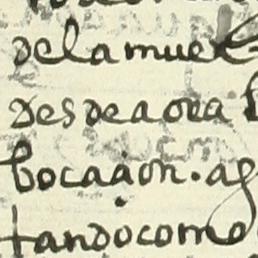 de la muer
desde aora
bocaçion. ag
tando como